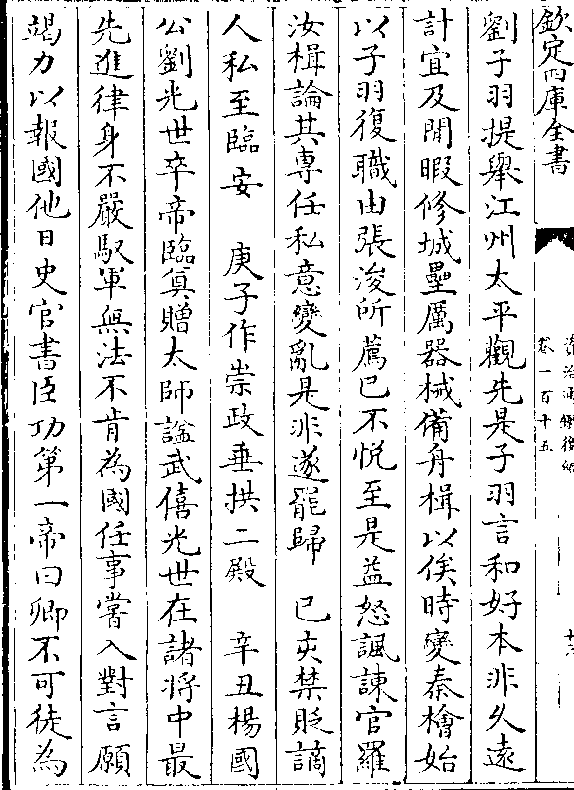 欽定四庫全書
資治通鑑後編
卷一百十五
十三
劉子羽提舉江州太平觀先是子羽言和好本非久遠
計宜及閒暇修城壘厲器械備舟楫以俟時變秦檜始
以子羽復職由張浚所薦已不悅至是益怒諷諫官羅
汝楫論其專任私意變亂是非遂罷歸　已亥禁貶謫
人私至臨安　庚子作崇政垂拱二殿　辛丑楊國
公劉光世卒帝臨奠贈太師諡武僖光世在諸將中最
先進律身不嚴馭軍無法不肯為國任事嘗入對言願
竭力以報國他日史官書臣功第一帝曰卿不可徒為